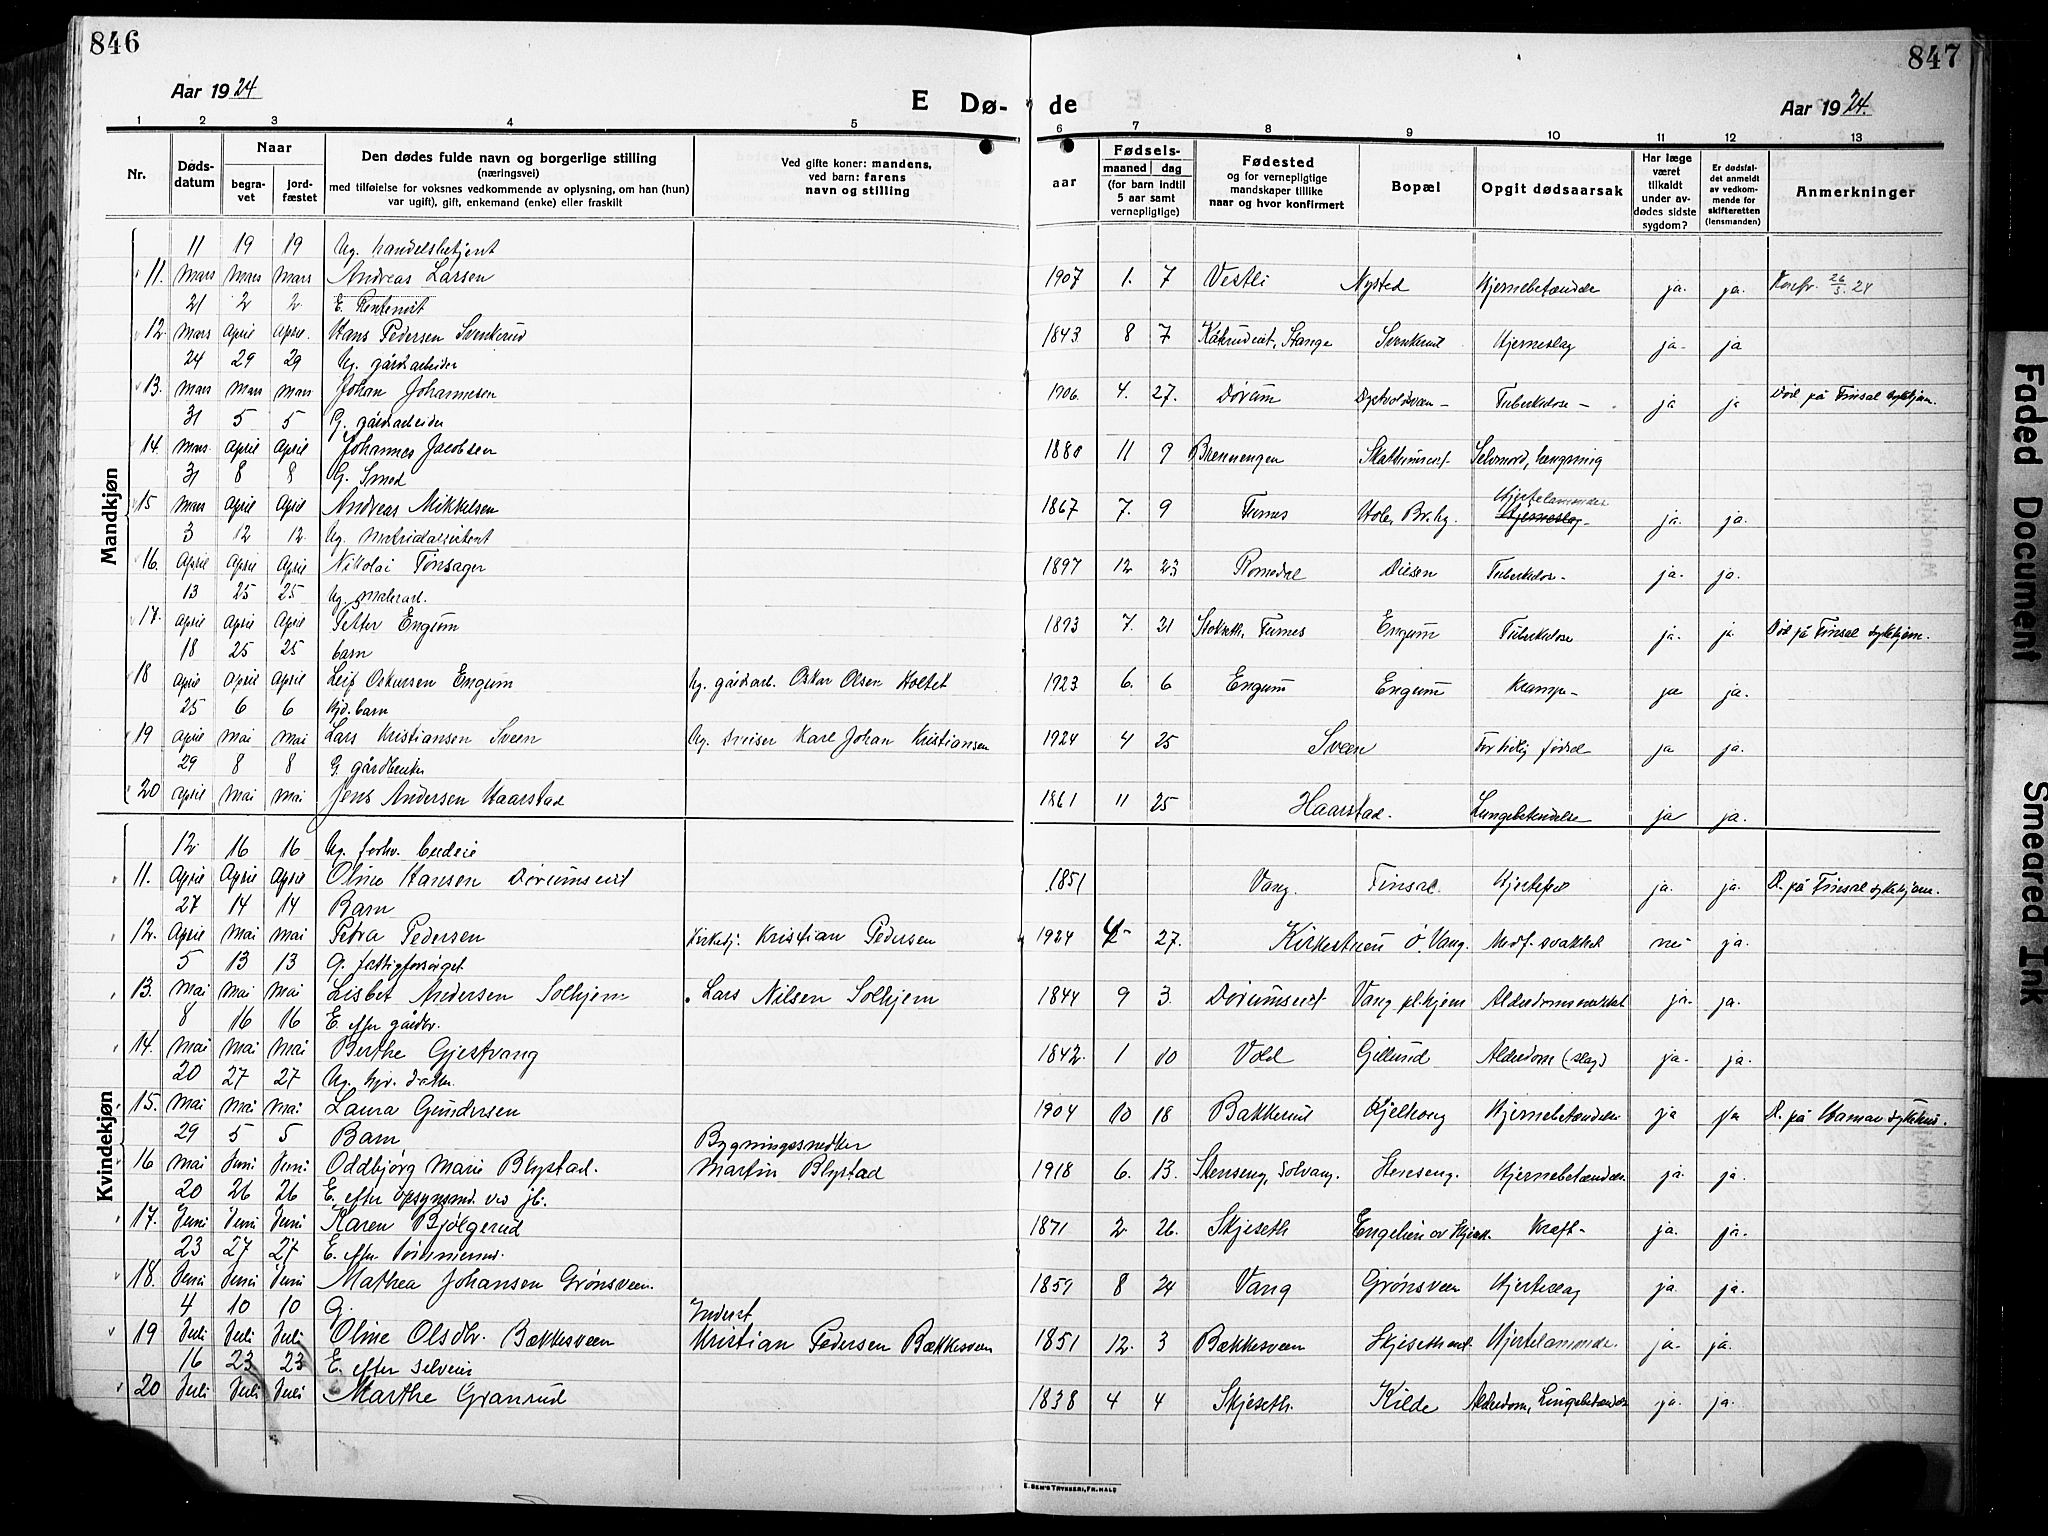 846
847
Aar 1924
E Dø-
de
Aar 1924.
1 2 3 4 5 6 7 8 9 10 11 12 13
Nr.
Døds-
datum
Naar
begra-
vet
jord-
fæstet
Den dødes fulde navn og borgerlige stilling
(næringsvei)
med tilføielse for voksnes vedkommende av oplysning, om han (hun)
var ugift), gift, enkemand (enke) eller fraskilt
Ved gifte koner: mandens,
ved barn: farens
navn og stilling
aar
Fødsels-
maaned dag
(for barn indtil
5 aar samt
vernepligtige)
Fødested
og for vernepligtige
mandskaper tillike
naar og hvor konfirmert
Bopæl
Opgit dødsaarsak
Har læge
været
tilkaldt
under av-
dødes sidste
sygdom?
Er dødsfal-
det anmeldt
av vedkom-
mende for
skifteretten
(lensmanden)
Anmerkninger
Mandkjøn
11 19 19 Ug. handelsbetjent
11. Mars Mars Mars Andreas Larsen 1907 1. 7 Vestli Nysted Hjernebetændelse ja. ja.
21 2 2
12. Mars April April Hans Pedersen Svenkerud 1843 8 7 Stange Svenkerud Hjerneslag ja- ja
24 29 29 Ug. gårdsarbeider
13. Mars Mars Mars Johan Johannesen 1906 4. 27. Dørum Tuberkulose - ja ja Død på Finsal sykehjem.
31 5 5 G. gårdsarbeider
14. Mars April April Johannes Jacobsen 1880 11 9 Brennengen Selvmord, hængning
31 8 8 G. Smed
15 Mars April April Andreas Mikkelsen 1867 7. 9 Furnes Hjertelammelse Hjerneslag- ja. ja.
3 12 12 Ug.
16. April April April Nikolai Tønsager 1897 12 23 Romedal Dilsen Tuberkulose- ja. ja.
13 25 25 Ug. malerarb.
17. April April April Petter Engum 1893 7. 21 Furnes Engum Tuberkulose ja. ja. Død på Finsal sykehjem.
18 25 25 barn
18 April April April Leif Oskarsen Engum Ug. gårdsarb. Oskar Olsen Holtet 1923 6. 6 Engum Engum Krampe- ja ja.
25 6 6 Hjd. barn
19 April Mai Mai Lars Kristiansen Sveen Ug. sveiser Karl Johan Kristiansen 1924 4 25 Sveen For tidlig fødsel ja ja.
29 8 8 G. gårdbruker
20 April Mai Mai Jens Andersen Haarstad 1861 11 25 Haarstad. Lungebetendelse ja ja.
Kvindekjøn
12 16 16 Ug. forhv. budeie
11. April April April Oline Hansen Dørumseiet 1851 Vang. Finsal. Hjertefeil ja. ja. D. på Finsal sykehjem.
27 14 14 Barn
12. April Mai Mai Petra Pedersen Kirketj. Kristian Pedersen 1924 4 27. Kirkestuen Ø. Vang. Medf. svakhet nei ja.
5 13 13 G. fattigforsørget
13. Mai Mai Mai Lisbet Andersen Solhjem Lars Nilsen Solhjem 1844 9 3. Dørumseiet Vang pl.hjem Alderdomssvakhet ja- ja.
8 16 16 E. efter gårdbr.
14. Mai Mai Mai Berthe Gjestvang 1842. 1 10 Vold Gillund Alderdom (slag) ja. ja.
20 27 27 Ug. hjv. datter
15. Mai Mai Mai Laura Gundersen 1904 10 18 Bakkerud Hjernebetændelse ja ja D. på Hamar sykehus.
29 5 5 Barn Bygningssnedker
16 Mai Juni Juni Oddbjørg Marie Blystad. Martin Blystad 1918 6. 13. Stenseng, Solvang. Stenseng. Hjernebetændelse. ja. ja.
20 26 26 E. efter opsynsmd. ved jb.
17. Juni Juni Juni Karen Bjølgerud 1871 2 26. Skjeseth Kræft- ja. ja.
23 27 27 E. efter tømmermd.
18. Juni Juni Juni Mathea Johansen Grønsveen. 1859 8 24 Vang Grønsveen Hjerteslag ja. ja.
4 10 10 G. Inderst
19 Juli Juli Juli Oline Olsdtr. Bækkesveen Kristian Pedersen Bækkesveen 1851 12. 3 Bækkesveen Hjertelammelse. ja- ja.
16 23 23 E. efter selveier
20 Juli Juli Juli Marthe Granrud 1838 4 4 Skjeseth. Kilde Alderdom, Lungebetændelse ja. ja.
E. SEM'S TRYKKERI, FR.HALD
Faded Document
Smeared Ink